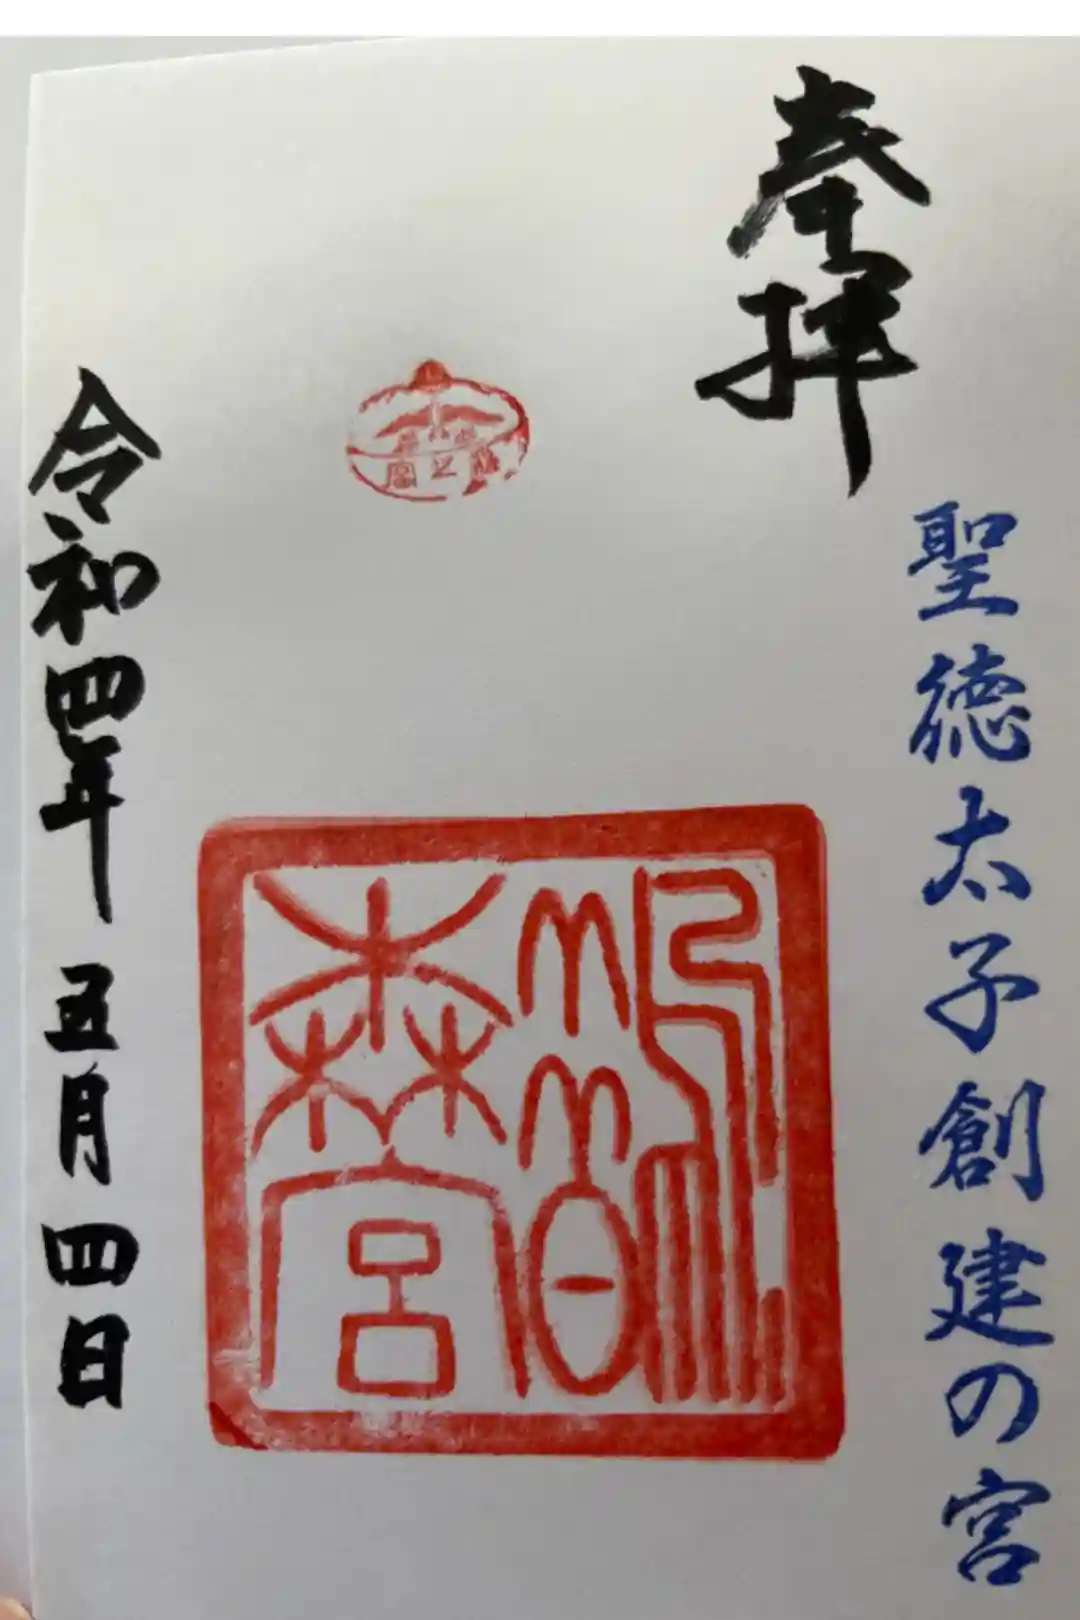 奉拝
聖徳太子創建の宮
鵲森宮
令和四年五月四日